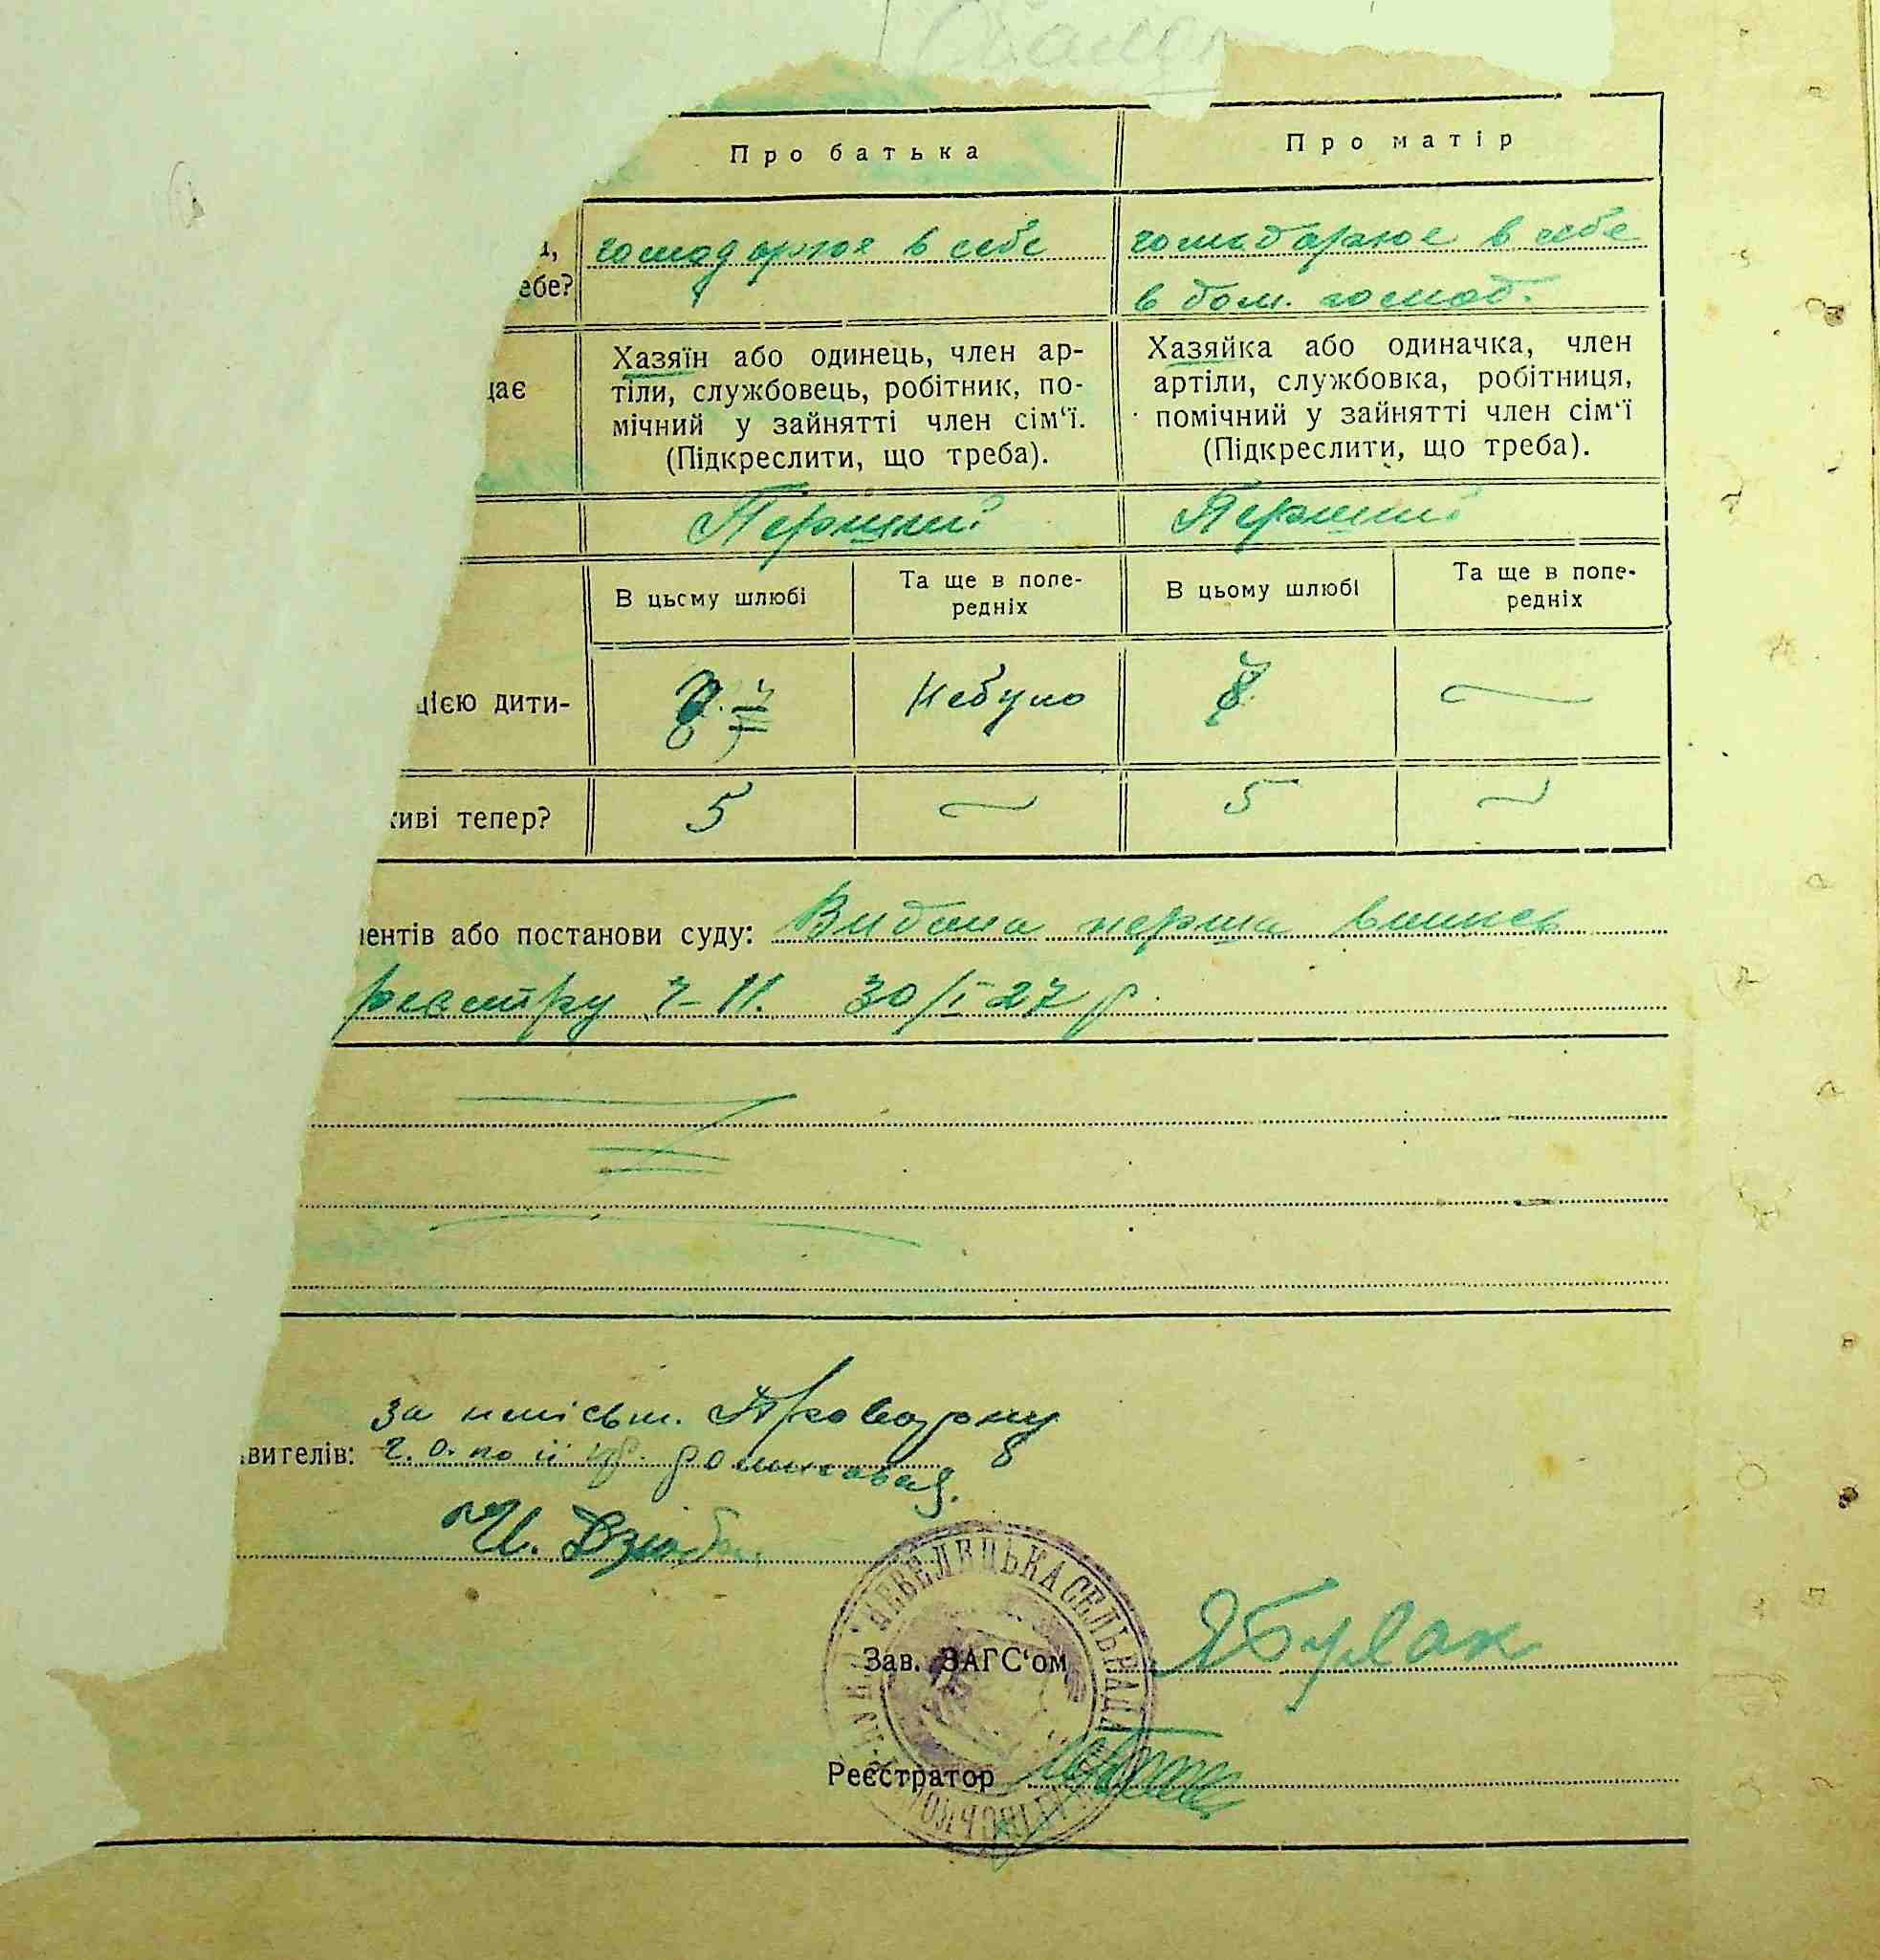 Про батька
Про матір
і,
ебе?
господарює в себе
господарює в себе
в дом. господ.
цає
Хазяїн або одинець, член ар-
тіли, службовець, робітник, по-
мічний у зайнятті член сім‘ї.
(Підкреслити, що треба).
Хазяйка або одиначка, член
артіли, службовка, робітниця,
помічний у зайнятті член сім‘ї
(Підкреслити, що треба).
Перший
Перший
В цьому шлюбі
Та ще в попе-
редніх
В цьому шлюбі
Та ще в попе-
редніх
цією дити-
Небуло
живі тепер?
5
5
ентів або постанови суду: Видана перша випись
реєстру Ч-11. 30/І-27 р.
за неписьм.
вителів:
И. Дзюба
Зав. ЗАГС‘ом ЯБурлак
Реєстратор
СЕЛЬРАДА